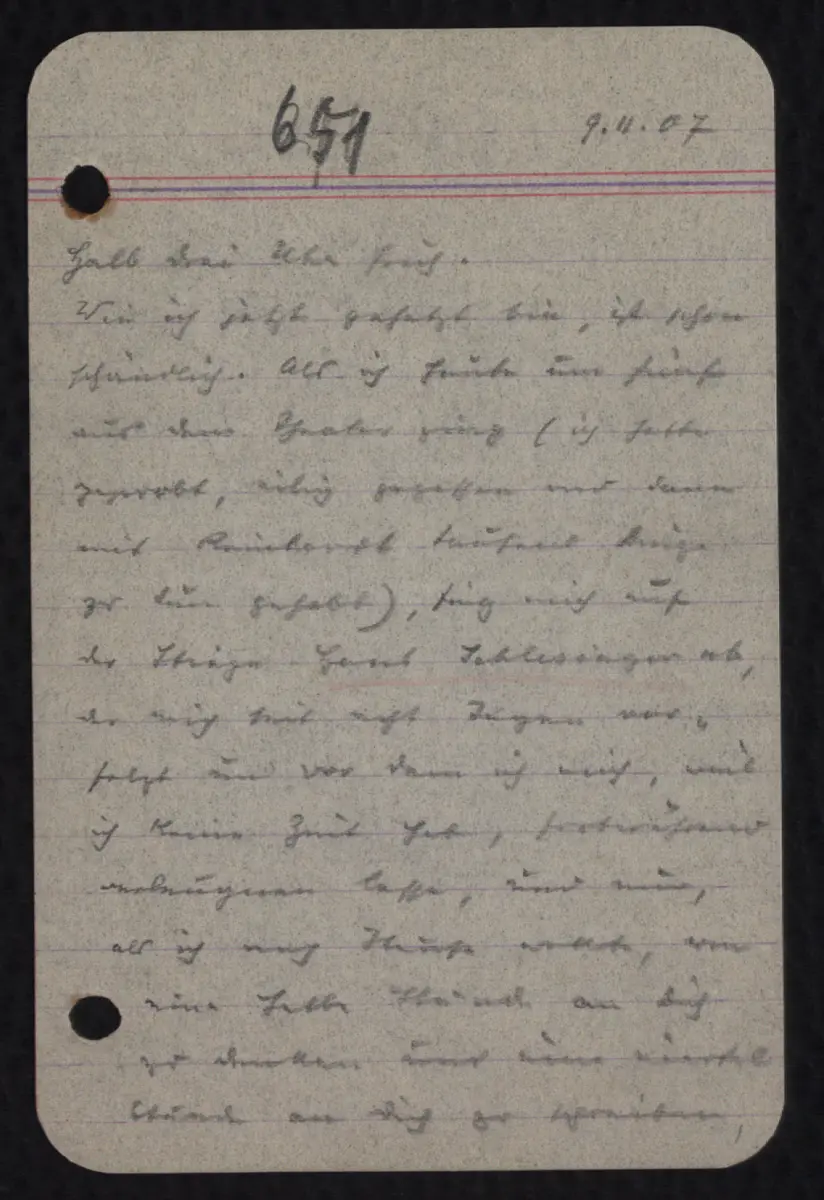 651
9.11.07
Halb drei Uhr früh.
Wie ich jetzt gehetzt bin, ist schon
schändlich. Als ich heute um fünf
aus dem Theater ging (ich hatte
geprobt, eilig gegessen und dann
mit Reinhardt tausend Dinge
zu tun gehabt), fing mich auf
der Stiege Hans Schlesinger ab,
der mich seit acht Tagen ver-
folgt und vor dem ich mich, weil
ich keine Zeit hab, fortwährend
verleugnen lasse, und nun,
als ich nach Hause wollte, um
eine halbe Stunde an Dich
zu denken und eine viertel
Stunde an Dich zu schreiben,